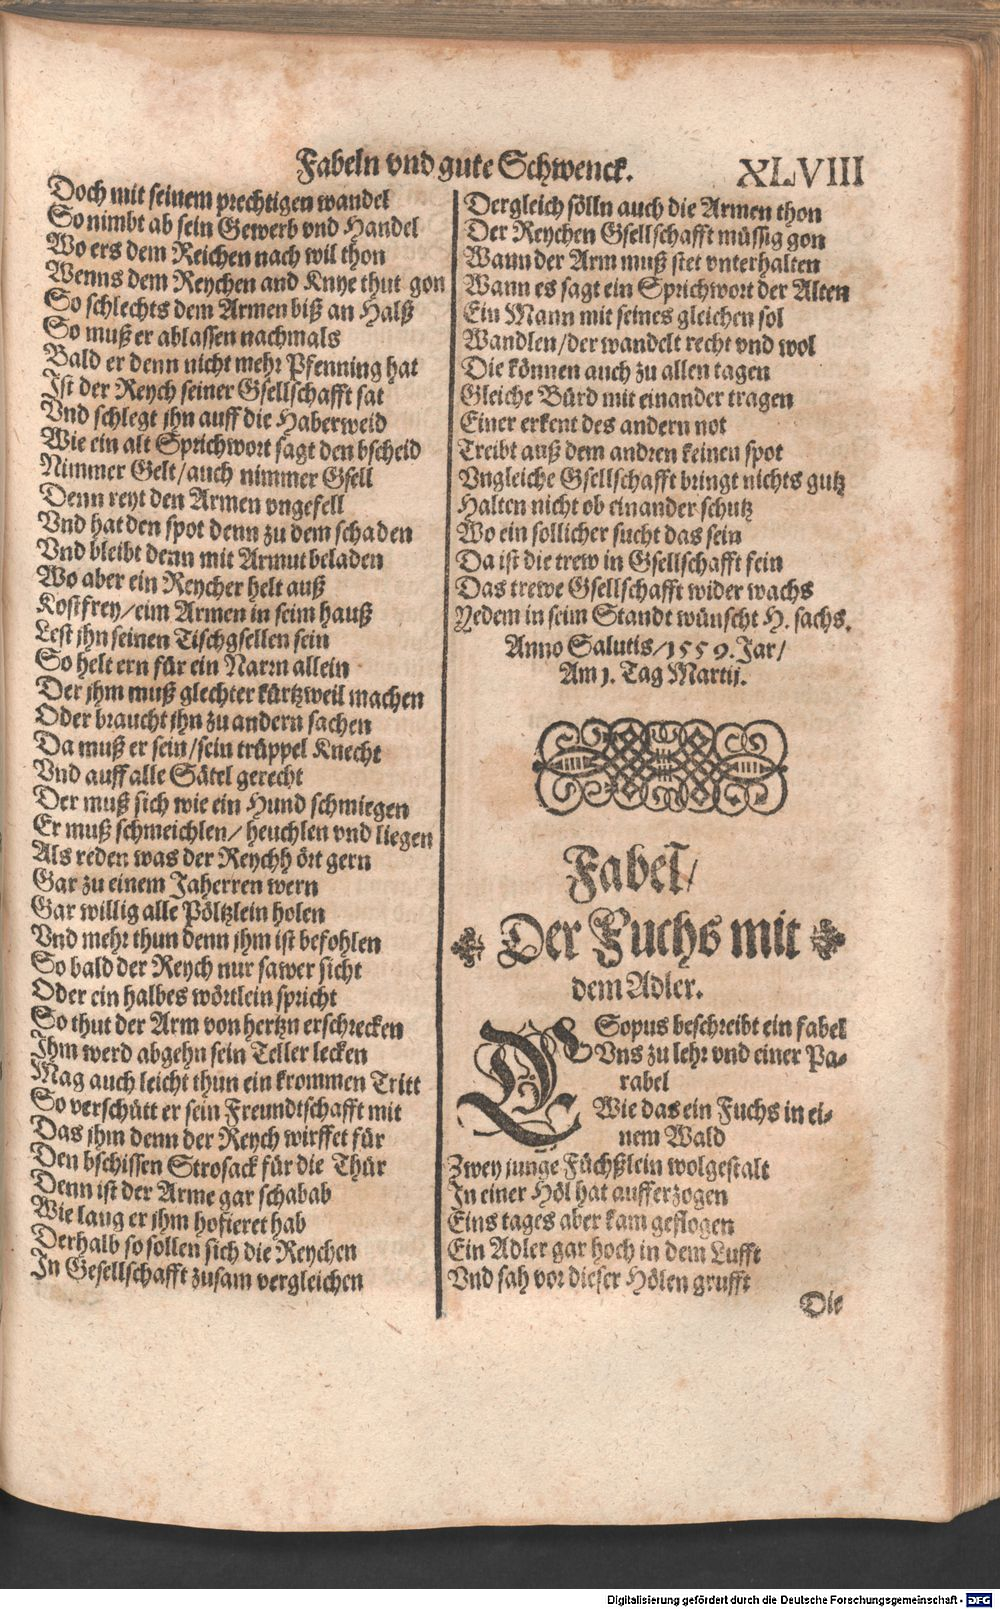 Fabeln vnd gute Schwenck. XLVIII
Doch mit seinem prechtigen wandel
So nimbt ab sein Gewerb vnd Handel
Wo ers dem Reichen nach wil thon
Wenns dem Reychen and Knye thut gon
So schlechts dem Armen biß an Halß
So muß er ablassen nachmals
Bald er denn nicht mehr Pfenning hat
Ist der Reych seiner Gsellschafft sat
Vnd schlegt jhn auff die Haberweid
Wie ein alt Sprichwort sagt den bscheid
Nimmer Gelt/auch nimmer Gsell
Denn reyt den Armen vngefell
Vnd hat den spot denn zu dem schaden
Vnd bleibt denn mit Armut beladen
Wo aber ein Reycher helt auß
Kostfrey/eim Armen in seim hauß
Lest jhn seinen Tischgsellen sein
So helt ern für ein Narrn allein
Der jhm muß glechter kürtzweil machen
Oder braucht jhn zu andern sachen
Da muß er sein/sein trüppel Knecht
Vnd auff alle Sätel gerecht
Der muß sich wie ein Hund schmiegen
Er muß schmeichlen/ heuchlen vnd liegen
Als reden was der Reychh ört gern
Gar zu einem Jaherren wern
Gar willig alle Pöltzlein holen
Vnd mehr thun denn jhm ist befohlen
So bald der Reych nur sawer sicht
Oder ein halbes wörtlein spricht
So thut der Arm von hertzn erschrecken
Ihm werd abgehn sein Teller lecken
Mag auch leicht thun ein krommen Tritt
So verschütt er sein Freundtschafft mit
Das jhm denn der Reych wirffet für
Den bschissen Strosack für die Thür
Denn ist der Arme gar schabab
Wie lang er jhm hofieret hab
Derhalb so sollen sich die Reychen
In Gesellschafft zusam vergleichen
Dergleich sölln auch die Armen thon
Der Reychen Gsellschafft müssig gon
Wann der Arm muß stet vnterhalten
Wann es sagt ein Sprichwort der Alten
Ein Mann mit seines gleichen sol
Wandlen/der wandelt recht vnd wol
Die können auch zu allen tagen
Gleiche Bürd mit einander tragen
Einer erkent des andern not
Treibt auß dem andren keinen spot
Vngleiche Gsellschafft bringt nichts gutz
Halten nicht ob einander schutz
Wo ein sollicher sucht das sein
Da ist die trew in Gsellschafft fein
Das trewe Gsellschafft wider wachs
Yedem in seim Standt wünscht H. sachs.
Anno Salutis/1559. Jar/
Am j. Tag Martij.
Fabel/
Der Fuchs mit
dem Adler.
ESopus beschreibt ein fabel
Vns zu lehr vnd einer Pa-
rabel
Wie das ein Fuchs in ei-
nem Wald
Zwey junge Füchßlein wolgestalt
In einer Höl hat aufferzogen
Eins tages aber kam geflogen
Ein Adler gar hoch in dem Lufft
Vnd sah vor dieser Hölen grufft
Die
Digitalisierung gefördert durch die Deutsche Forschungsgemeinschaft - DFG